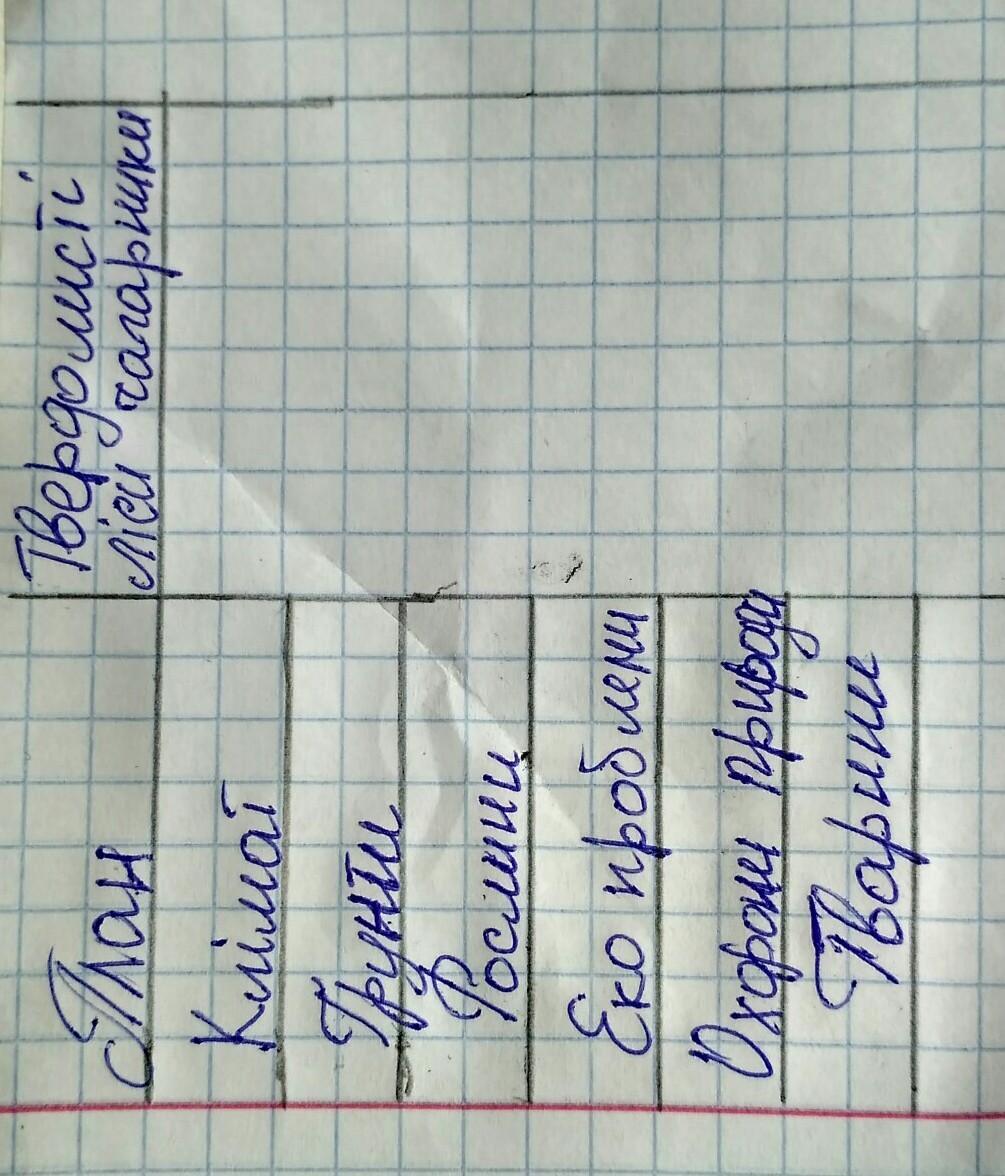 План
Твердолисті
ліси чагарники
Клімат
Ґрунти
Рослини
Еко проблеми
Охорони природи
Тварини